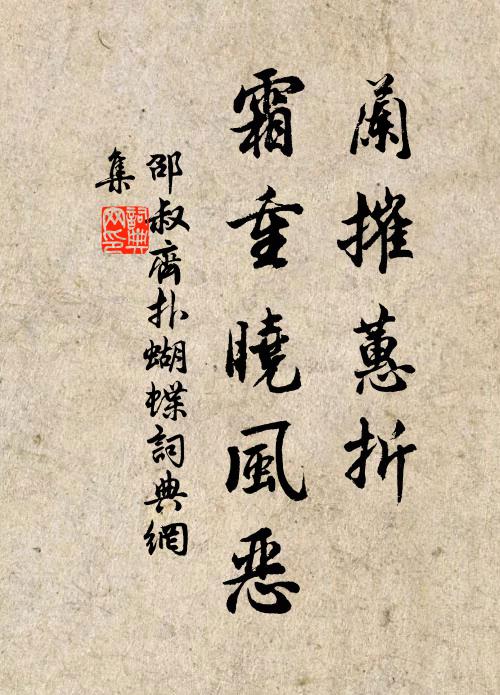 蘭摧蕙折
霜重曉風惡
邵叔齊扑蝴蝶詞典網
集
詞典
网印